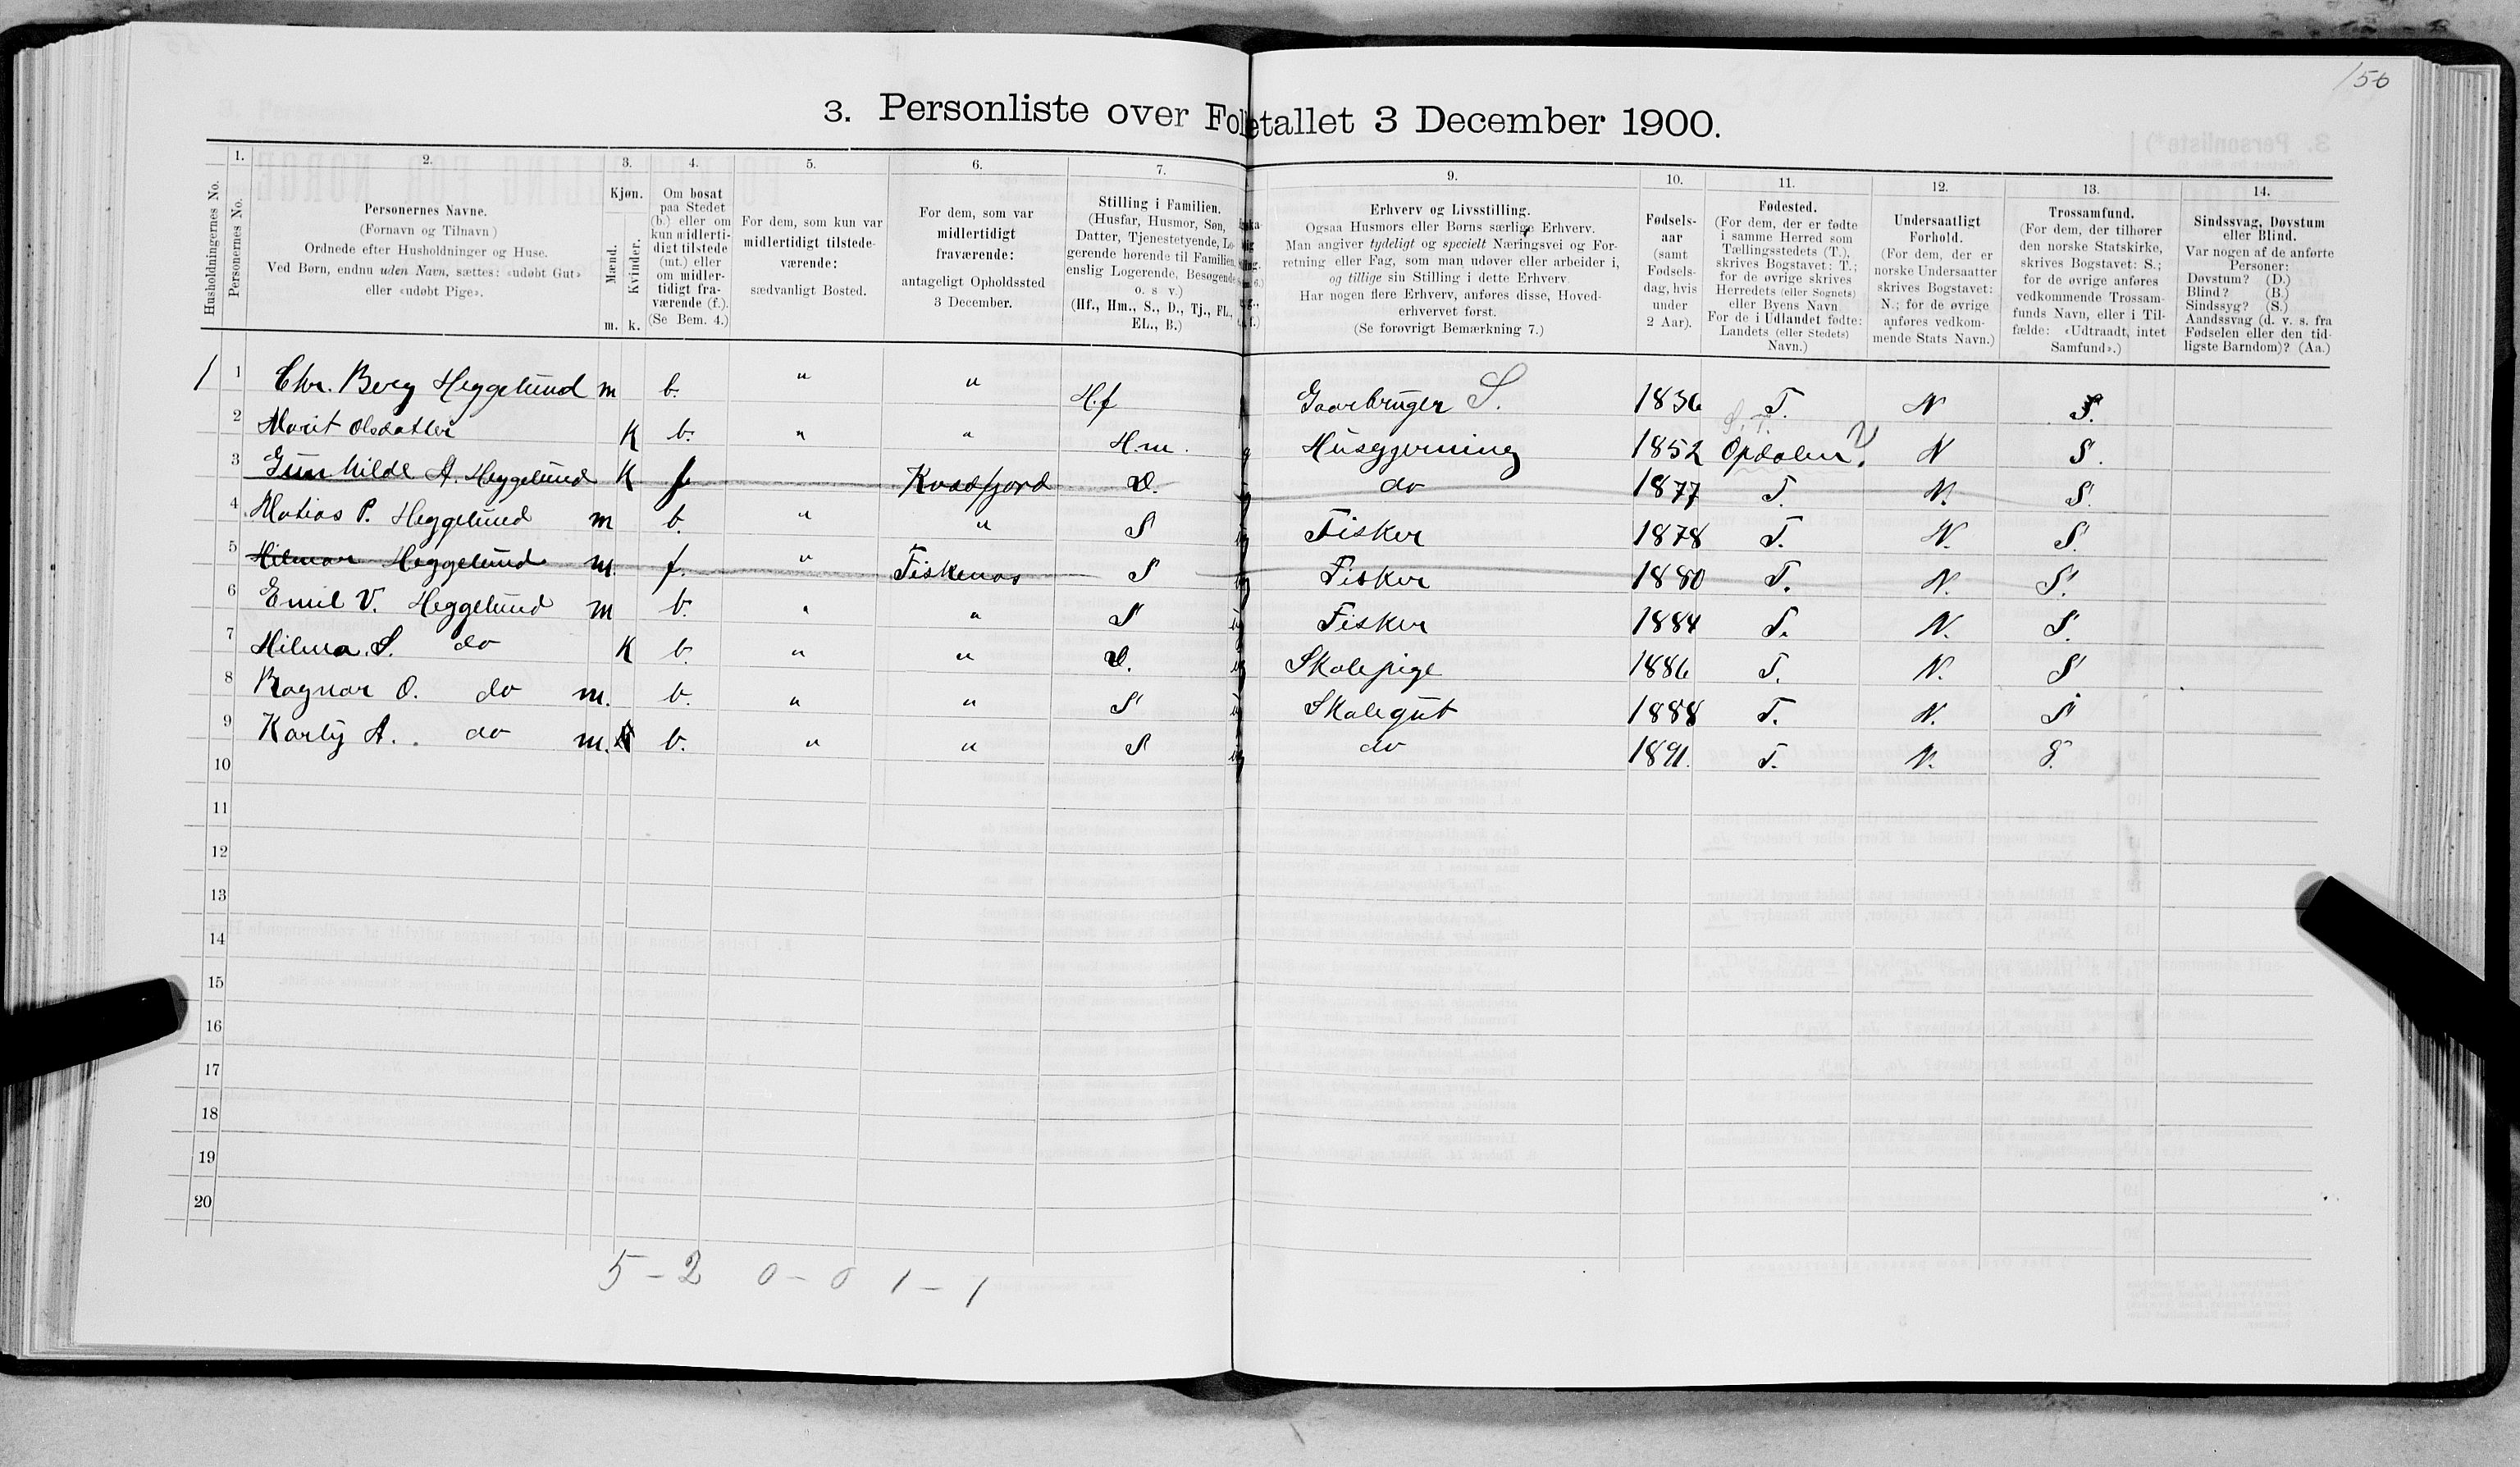 150
3. Personliste over Folketallet 3 December 1900.
1. 2. 3. 4. 5. 6. 7. 9. 10. 11. 12. 13. 14.
Husholdningernes No.
Personernes No.
Personernes Navne.
(Fornavn og Tilnavn)
Ordnede efter Husholdninger og Huse.
Ved Børn, endnu uden Navn, sættes: «udøbt Gut»
eller «udøbt Pige».
Kjøn.
Mænd. Kvinder.
m. k.
Om bosat
paa Stedet
(b.) eller om
kun midlerti-
digt tilstede
(mt.) eller
om midler-
tidigt fra-
værende (f.).
(Se Bem. 4.)
For dem, som kun var
midlertidigt tilstede-
værende:
sædvanligt Bosted.
For dem, som var
midlertidigt
fraværende:
antageligt Opholdssted
3 December.
Stilling i Familien.
(Husfar, Husmor, Søn,
Datter, Tjenestetyende, Lo-
gerende hørende til Familien,
enslig Logerende, Besøgende
o. s v.)
(Hf., Hm., S., D., Tj., FL.,
EL., B.)
Erhverv og Livsstilling.
Ogsaa Husmors eller Børns særlige Erhverv.
Man angiver tydeligt og specielt Næringsvei og For-
retning eller Fag, som man udøver eller arbeider i,
og tillige sin Stilling i dette Erhverv.
Har nogen flere Erhverv, anføres disse, Hoved-
erhvervet først.
(Se forøvrigt Bemærkning 7.)
Fødsels-
aar
(samt
Fødsels-
dag, hvis
under
2 Aar).
Fødested.
(For dem, der er fødte
i samme Herred som
Tællingsstedets (T.),
skrives Bogstavet: T.;
for de øvrige skrives
Herredets (eller Sognets)
eller Byens Navn.
For de i Udlandet fødte:
Landets (eller Stedets)
Navn.)
Undersaatligt
Forhold.
(For dem, der er
norske Undersaatter
skrives Bogstavet:
N.; for de øvrige
anføres vedkom-
mende Stats Navn.)
Trossamfund.
(For dem, der tilhører
den norske Statskirke,
skrives Bogstavet: S.;
for de øvrige anføres
vedkommende Trossam-
funds Navn, eller i Til-
fælde: «Udtraadt, intet
Samfund».)
Sindssvag, Døvstum
eller Blind.
Var nogen af de anførte
Personer:
Døvstum? (D.)
Blind? (B.)
Sindssyg? (S.)
Aandssvag (d. v. s. fra
Fødselen eller den tid-
ligste Barndom)? (Aa.)
1 1 Chr. Berg Heggelund m b. " " H.f Gaarbruger S. 1836 T. N S.
2 Marit Olsdatter K b. " " H.m. Husgjerning 1852 Opdalen. N S.
3 Gunhilde A. Heggelund K f. Kvædfjord D. do 1877 T. N. S.
4 Matias P. Heggelund m b. " " S Fisker 1878 T. N. S.
5 Hilmar Heggelund m f. " Fiskenæs S Fisker 1880 T. N. S.
6 Emil V. Heggelund m b. " " S Fisker 1884 T. N. S.
7 Hilma. S. do K b. " " D. Skolepige 1886 T. N. S
8 Ragnar O. do m. b. " " S Skolegut 1888 T. N. S
9 Karly A. do m. b. " " S do 1891. T. N. S.
10
11
12
13
14
15
16
17
18
19
20
5 - 2 0 - 0 1 - 1